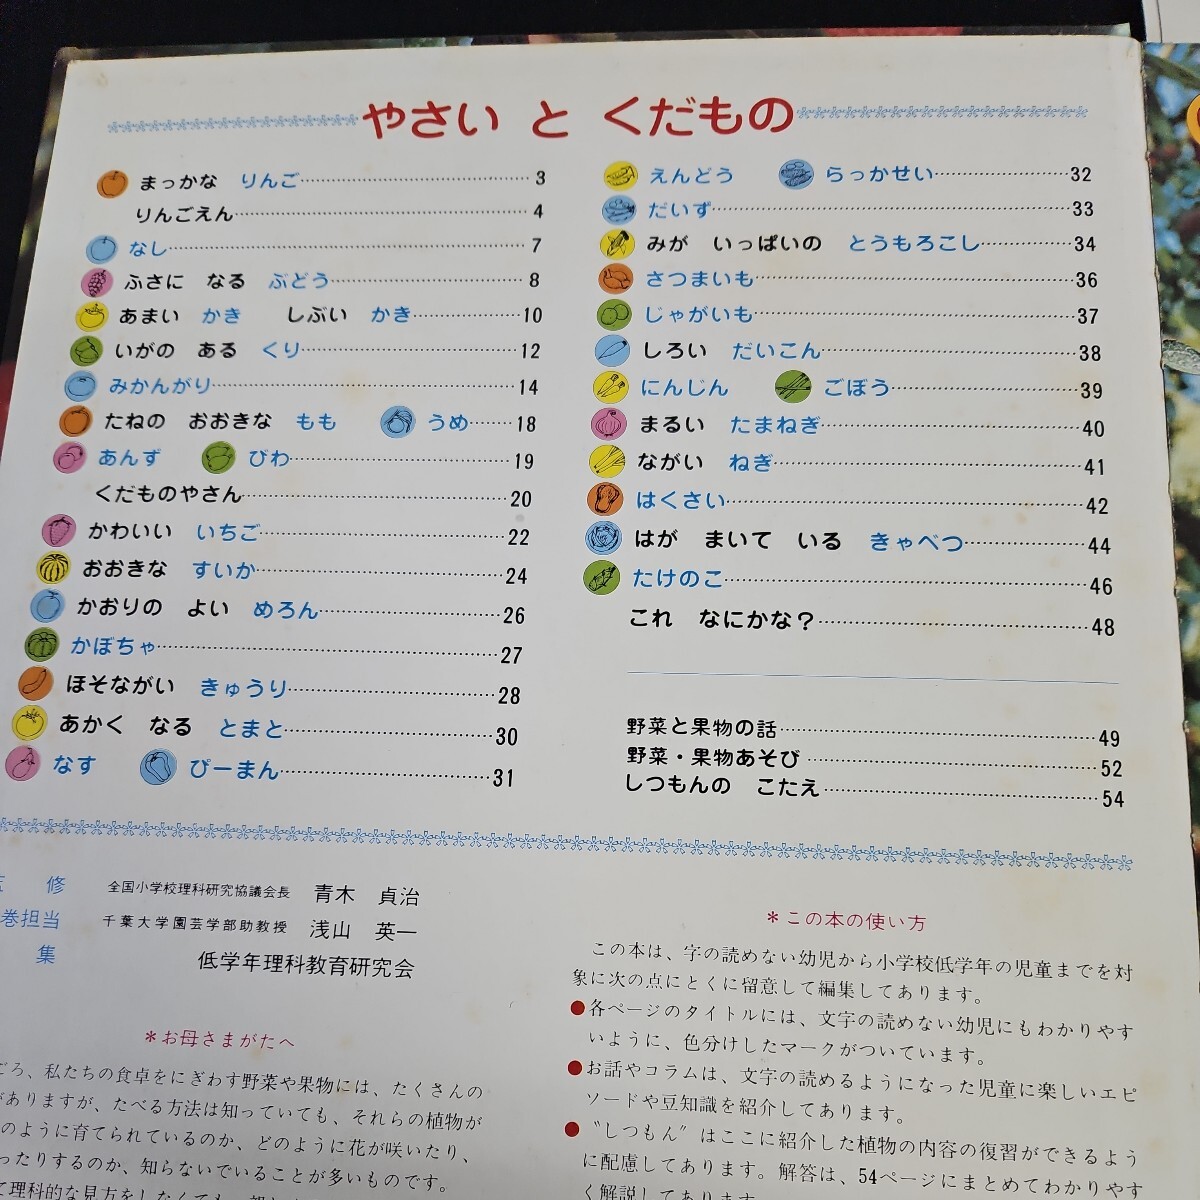 やさい と くだもの
まっかな りんご……3
りんごえん……4
なし……7
ふさに なる ぶどう……8
あまい かき しぶい かき……10
いがの ある くり……12
みかんがり……14
たねの おおきな もも うめ……18
あんず びわ……19
くだものやさん……20
かわいい いちご……22
おおきな すいか……24
かおりの よい めろん……26
かぼちゃ……27
ほそながい きゅうり……28
あかく なる とまと……30
なす ぴーまん……31
えんどう らっかせい……32
だいず……33
みが いっぱいの とうもろこし……34
さつまいも……36
じゃがいも……37
しろい だいこん……38
にんじん ごぼう……39
まるい たまねぎ……40
ながい ねぎ……41
はくさい……42
はが まいて いる きゃべつ……44
たけのこ……46
これ なにかな?……48
野菜と果物の話……49
野菜・果物あそび……52
しつもんの こたえ……54
修 全国小学校理科研究協議会長 青木 貞治
巻担当 千葉大学園芸学部助教授 浅山 英一
集 低学年理科教育研究会
*お母さまがたへ
ごろ、私たちの食卓をにぎわす野菜や果物には、たくさんの
がありますが、たべる方法は知っていても、それらの植物が
のように育てられているのか、どのように花が咲いたり、
ったりするのか、知らないでいることが多いものです。
て理科的な見方をしなくても、
*この本の使い方
この本は、字の読めない幼児から小学校低学年の児童までを対
象に次の点にとくに留意して編集してあります。
●各ページのタイトルには、文字の読めない幼児にもわかりやす
いように、色分けしたマークがついています。
●お話やコラムは、文字の読めるようになった児童に楽しいエピ
ソードや豆知識を紹介してあります。
●"しつもん"はここに紹介した植物の内容の復習ができるよう
に配慮してあります。解答は、54ページにまとめてわかりやす
く解説してあります。